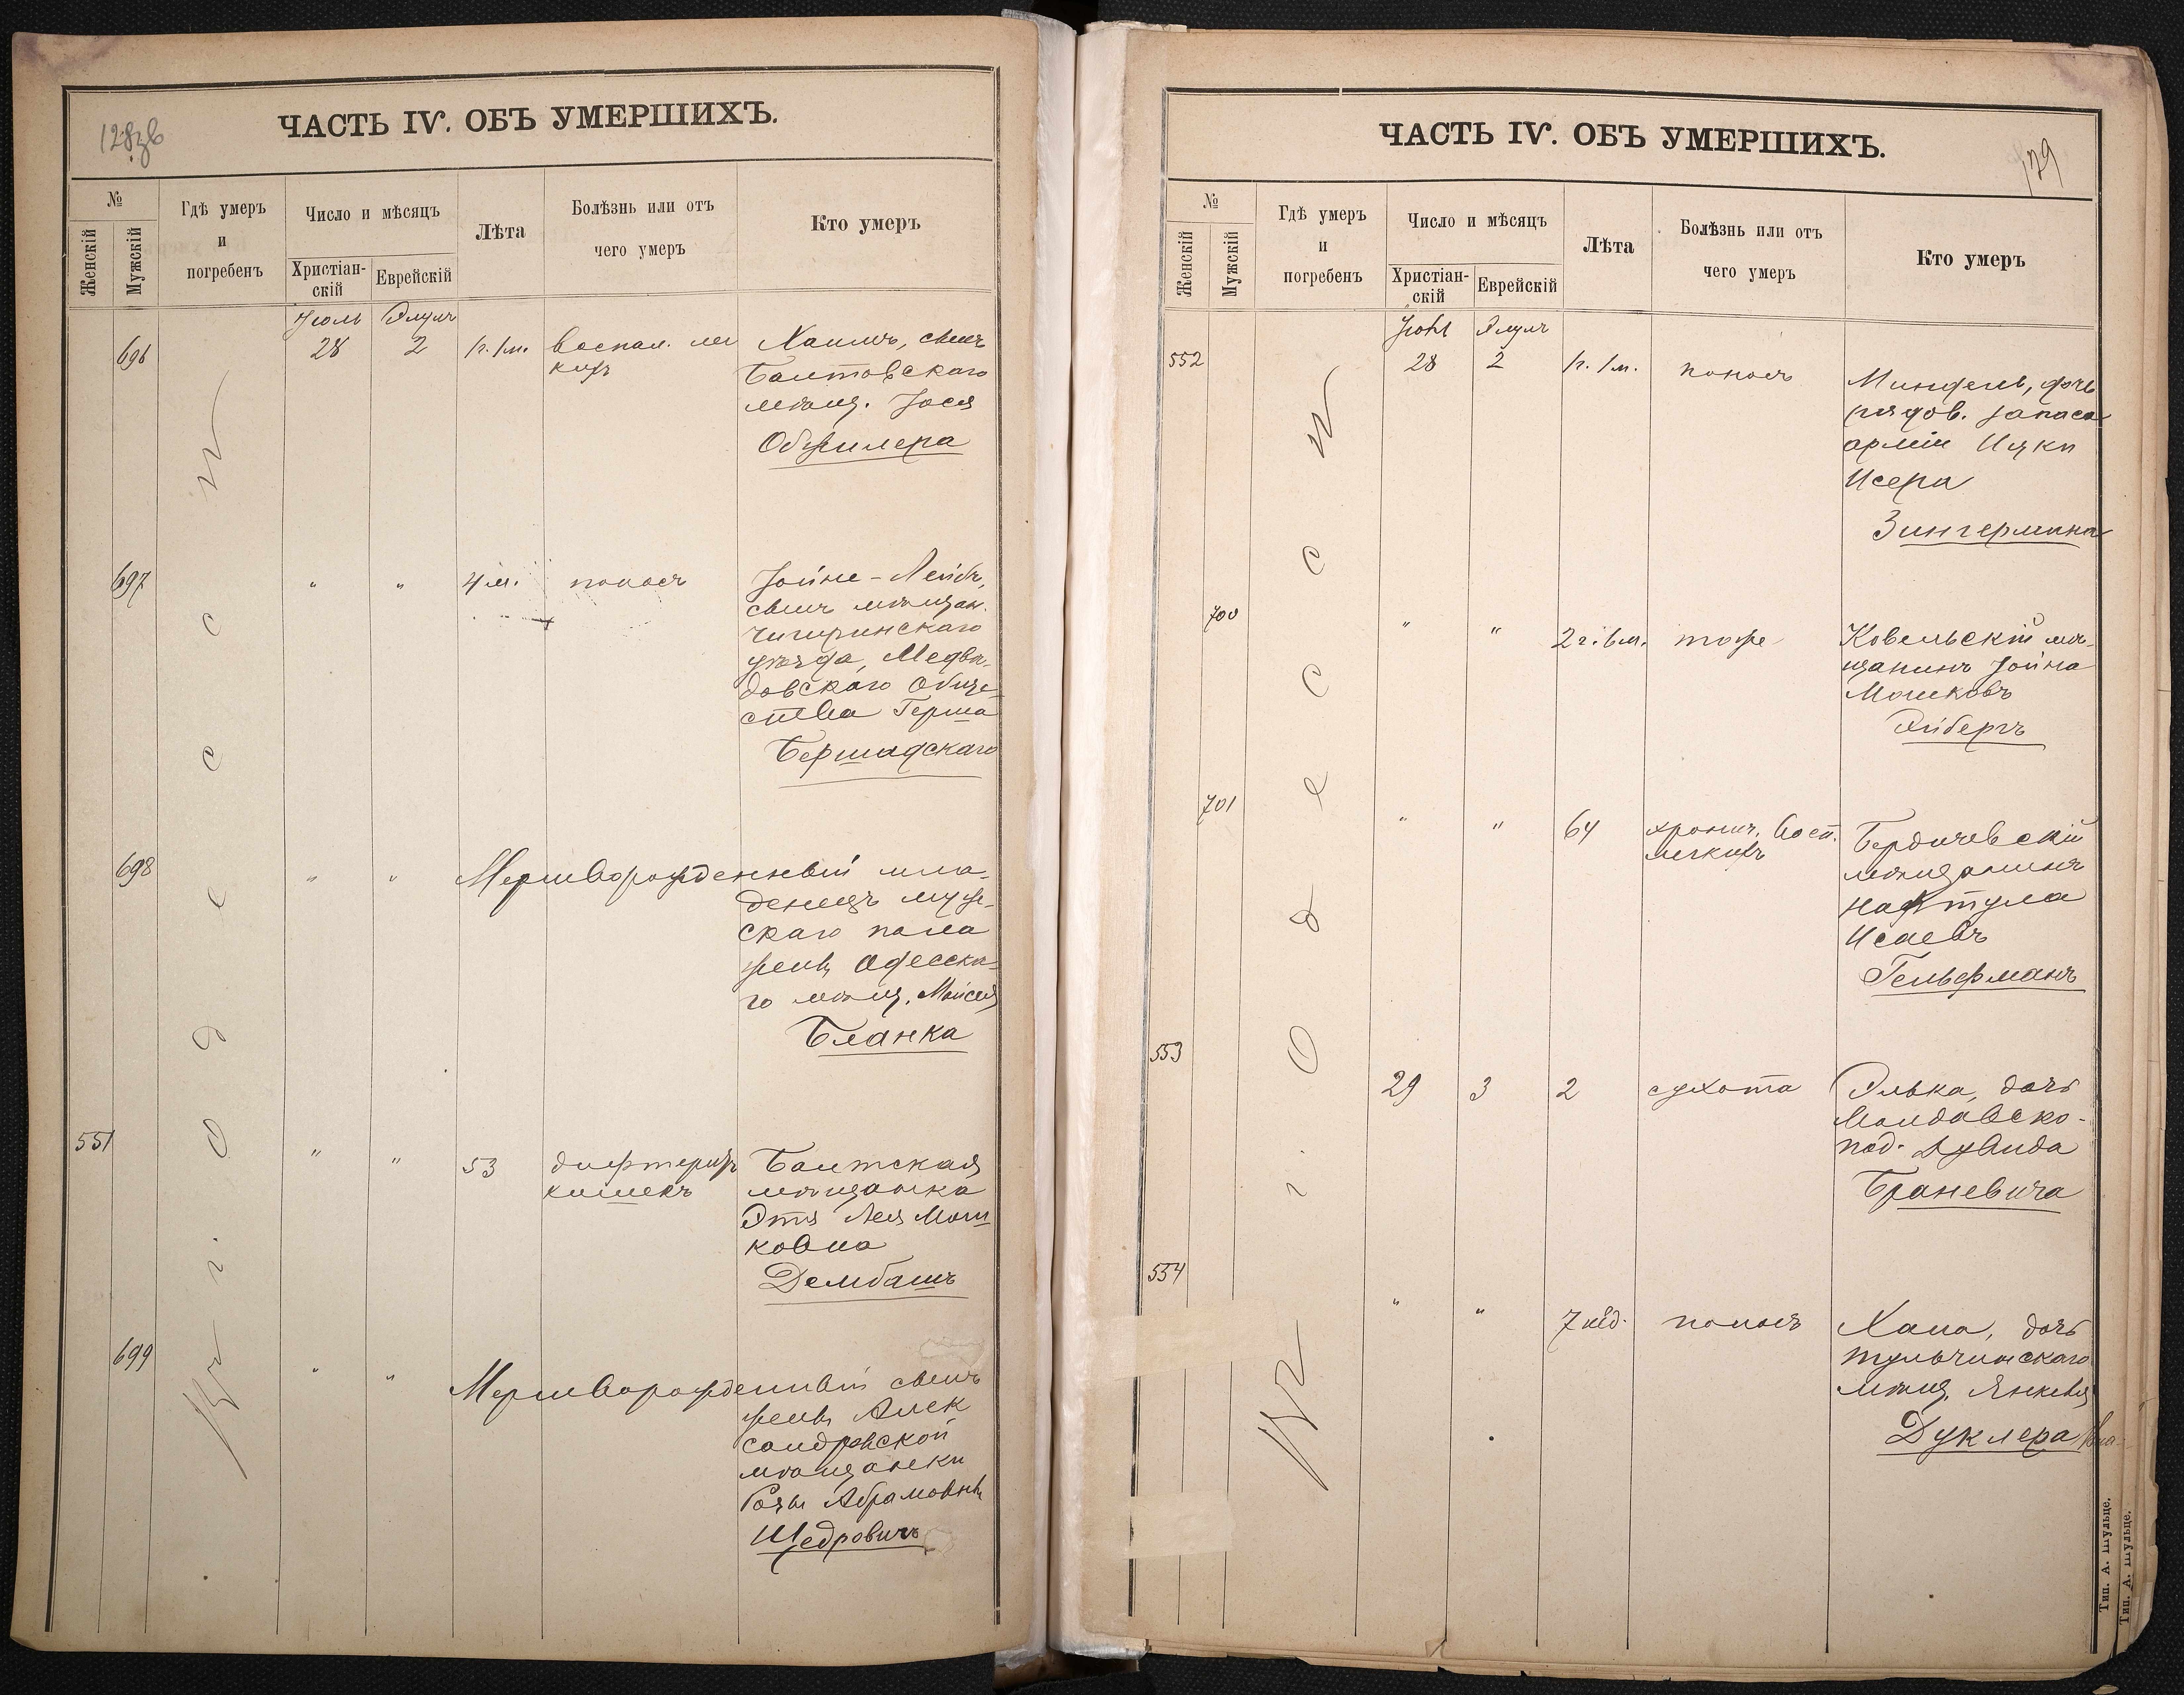 128об
ЧАСТЬ IV. ОБЪ УМЕРШИХЪ.
№
Женскій
Мужскій
Гдѣ умеръ
и
погребенъ
Число и мѣсяцъ
Христіан-
скій
Еврейскій
Лѣта
Болѣзнь или отъ
чего умеръ
Кто умеръ
Іюль Элулъ
696 28 2 1г. 1м. воспал. лег
кихъ
Хаимъ, сынъ
Балтовскаго
мѣщ. Іося
697 " " 4 м. поносъ
Іойне-Лейбъ,
сынъ мѣщан.
Чигиринскаго
уѣзда, Медвѣ-
довскаго обще-
ства Герша
Бершадскаго
698 " " Мертворожденный мла-
денецъ муж-
скаго пола
жены Одесска-
го мѣщ. Мойсея
Бланка
551 " " 53 дифтеритъ
кишекъ
Балтская
мѣщанка
Этя Лея Мош
ковна
Дембашъ
699 " " Мертворожденный сынъ
жены Алек
сандровской
мѣщанки
Розы Абрамовны
Щедровичъ
въ г. Одессѣ
129
ЧАСТЬ IV. ОБЪ УМЕРШИХЪ.
№
Женскій
Мужскій
Гдѣ умеръ
и
погребенъ
Число и мѣсяцъ
Христіан-
скій
Еврейскій
Лѣта
Болѣзнь или отъ
чего умеръ
Кто умеръ
Іюль Элулъ
552 28 2 1г. 1м. поносъ
Миндель, дочь
рядов. запаса
арміи Ицки
Исера
Зингермана
700 " " 2г. 6м. тоже
Ковельскій мѣ-
щанинъ Іойна
Мошковъ
Эйбергъ
701 " " 64 хронич. восп.
легкихъ
Бердичевскій
мѣщанинъ
Нафтула
Исаевъ
Гельфманъ
553
29 3 2 сухота
Элька, дочь
Молдавско-
под. Давида
Браневича
554
" " 7 нед. поносъ
Хана, дочь
тульчинскаго
мѣщ. Янкеля
Дуклера
въ г. Одессѣ
Тип. А. Шульце.
Тип. А. Шульце.